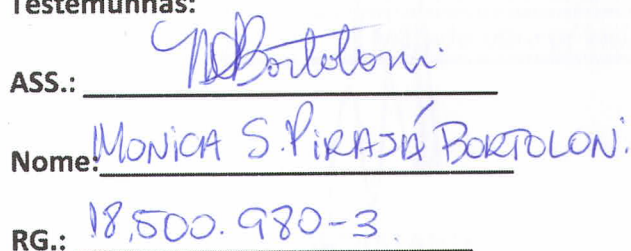 Testemunhas:
ASS.: MSBortoloni
Nome: MONICA S. PIRAJÁ BORTOLONI
RG.: 18.500.980-3